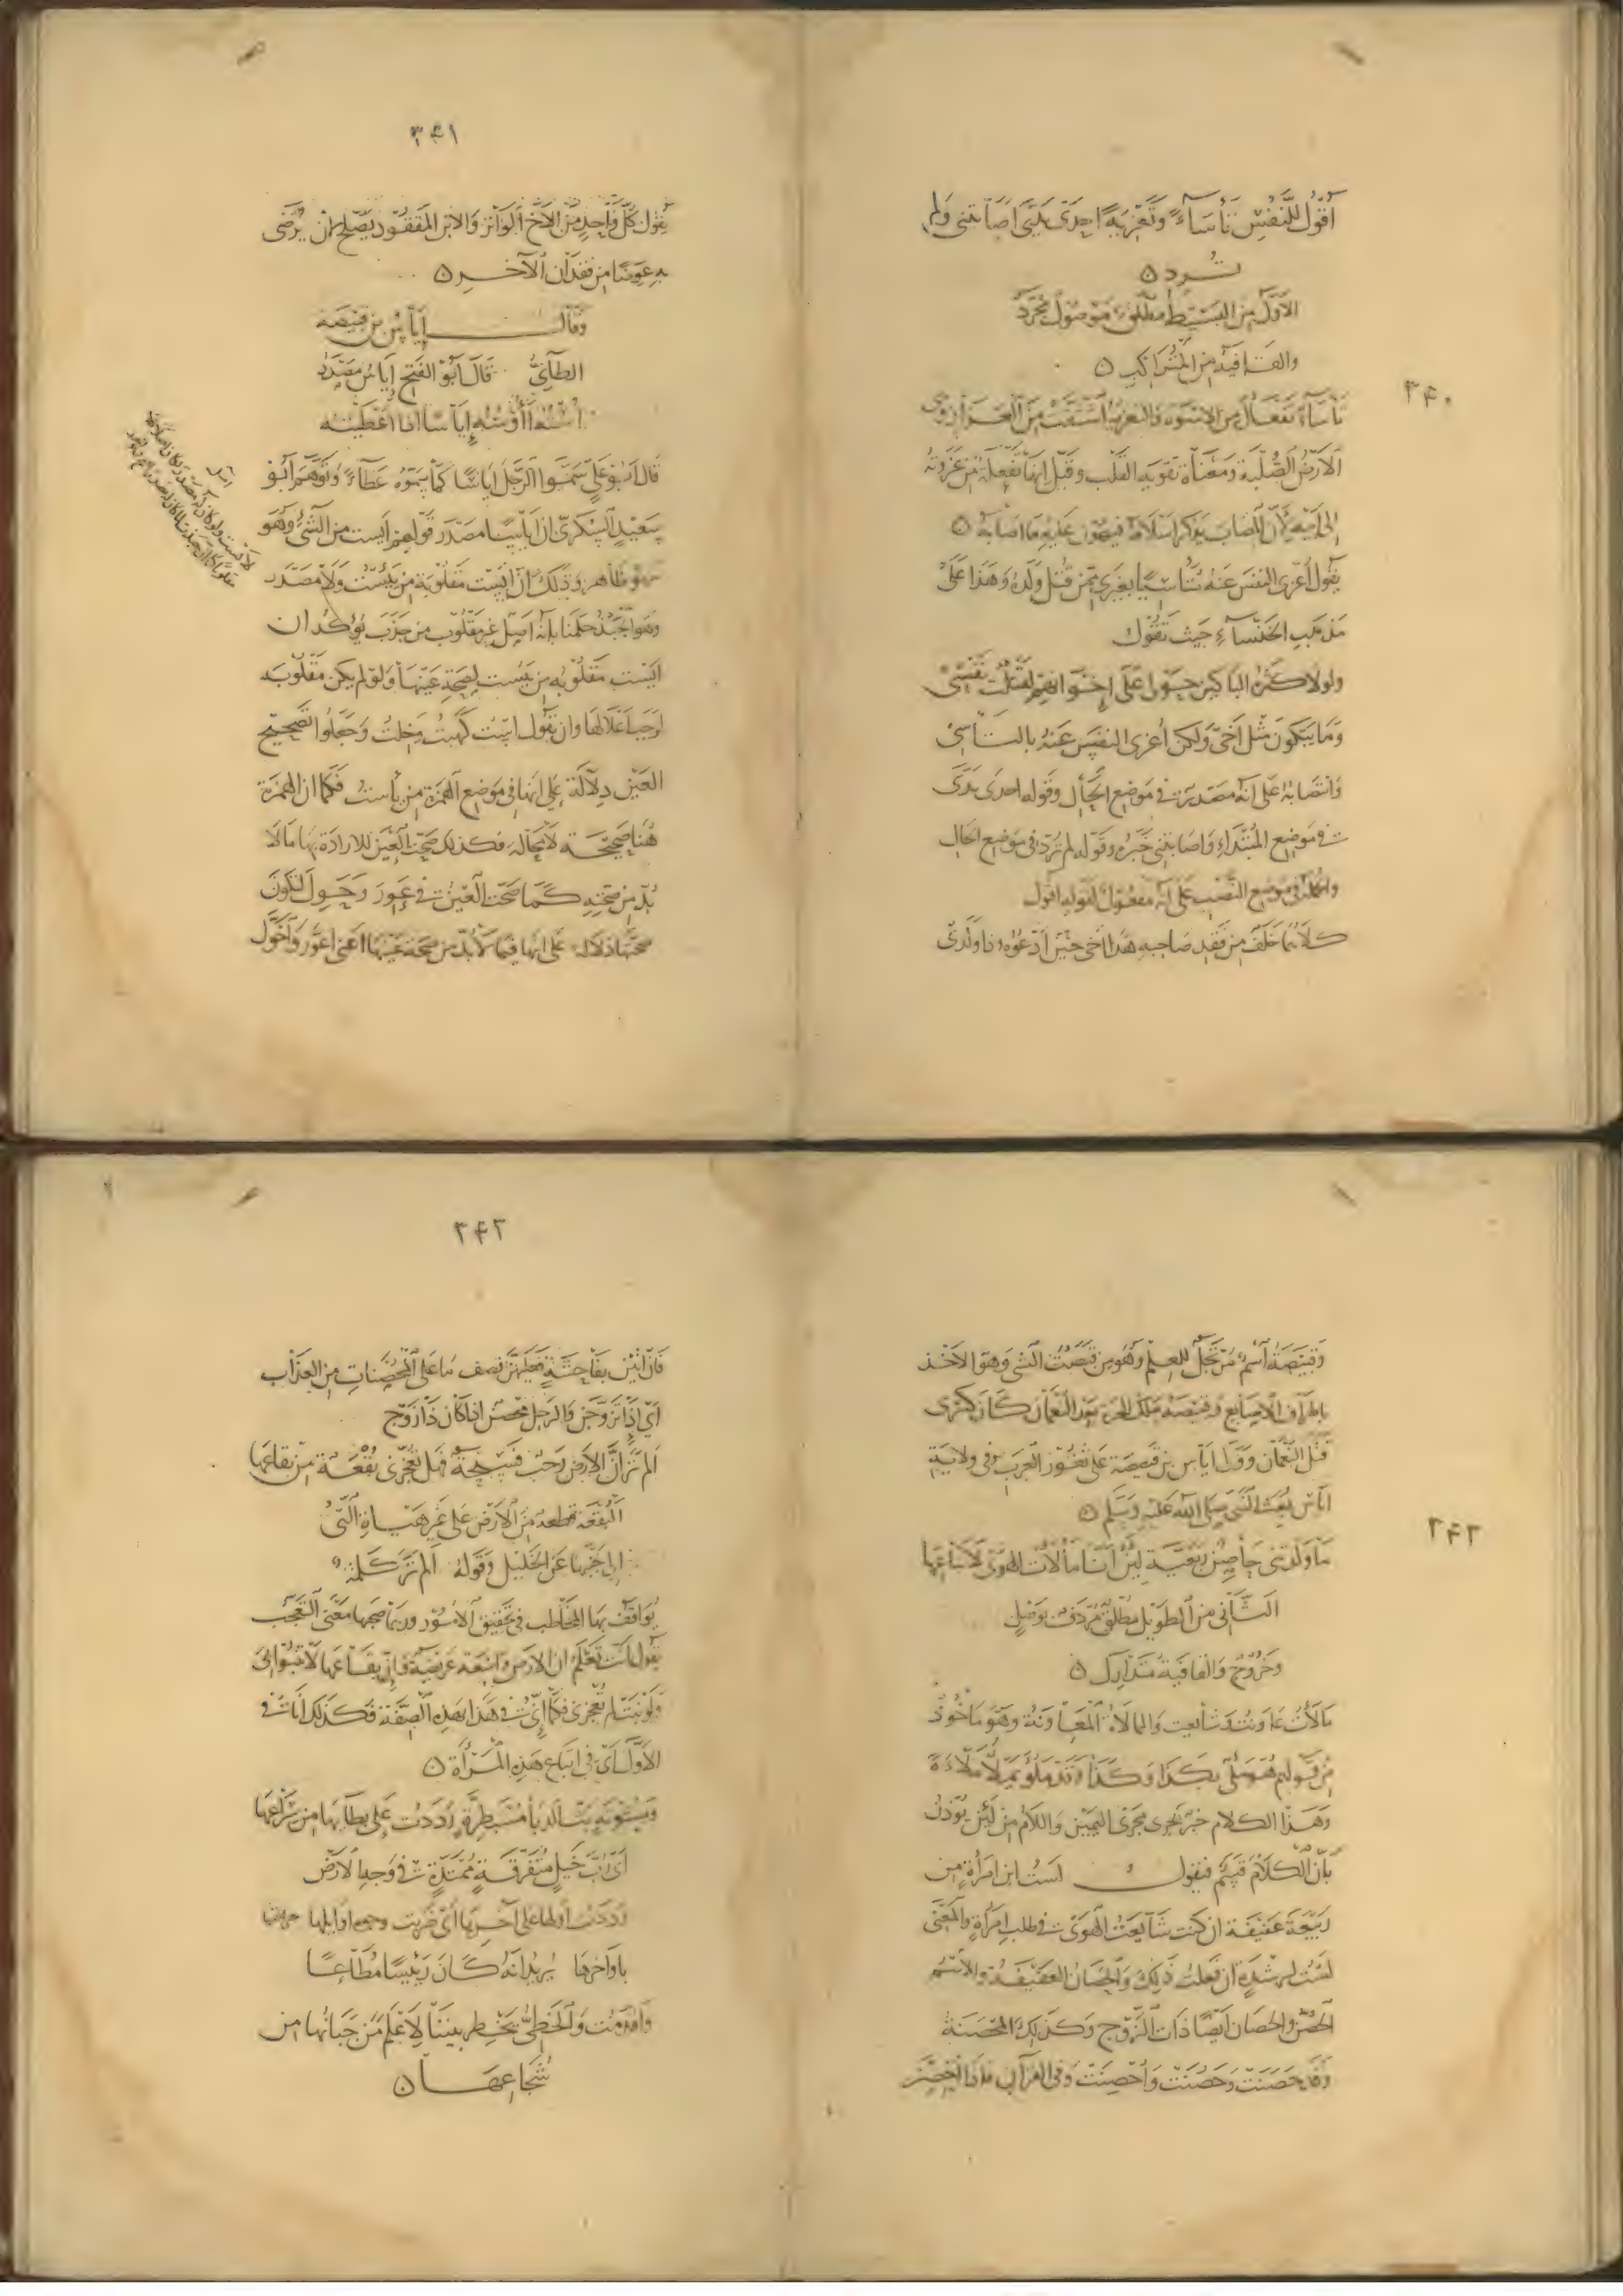 ٣٤٠
أَقُولُ للنَّفْسِ تَأْسَاءً وَتَعْزِيَةً إِحْدَى يَدَيَّ أَصَابَتْنِي وَلَمْ
تُرِد ۝
الأوّل من البَسِيطِ مُطْلَق مَوْصُول مُجَرَّد
والقافية من المُتَراكب ۝
تأساء تفعال من الاسوة والتعزية اشتقت من العزاز وهى
الارض الصُّلبة ومعناه تقوية القلب وقيل إنها تفعلة من عزوته
إلى أبيه لأن المصاب يذكر اسلافه فيهون عليه ما أصابه ۝
يقول أعزى النفس عنه تأسّيًا بغيرى ممّن قُتل ولده وهذا على
مذهب الخنساء حيث تقول
ولولا كثرة الباكين حولى على إخوانهم لقتلت نفسى
وما يبكون مثل أخى ولكن أعزى النفس عنه بالتأسى
وانتصابه على أنه مصدر فى موضع الحال وقوله احدى يدىّ
فى موضع المُبْتَدَاء وأصابتنى خبره وقوله لم تُرِد فى موضع الحال
والجملة فى موضع النصب على أنه مفعول لقوله اقول
كلاهما خَلَفٌ من فَقْدِ صاحبه هذا أخى حين أدعوه وذا ولدى
٣٤١
يقول كلّ واحد من الأخ الواتر والابن المفقود يصلح لأن يُرضى
به عوضًا من فقدان الآخر ۝
وقال إِيَاسُ بن قَبِيصَة
الطائىُّ قال أبو الفتح إياس مصدر
أُسْتُه أَؤُوسُه إِياسًا اذا اعطيته
قال أبو علىّ سَمَّوا الرجل إياسًا كما سَمَّوْه عطاءً وتوهّم أبو
سعيد السكرى ان اياسا مصدر قولهم ايست من الشىء وهو
ظاهر وذلك أن ايست مقلوبة من يئست ولا مصدر
ايست مقلوبة من يئست لصحة عينها ولو لم يكن مقلوبة
لوجب اعلالها وان تقول اِسْتُ كهبت وخلت وجعلوا تصحيح
العين دلالة على انها فى موضع الهمزة من يأست فكما ان الهمزة
هُنَا صحيحة لا محالة فكذلك صحّت العين للارادة بها ما لا
بُدّ من صحته كما صحّت العين فى عَوِرَ وحَوِل لتكون
صحتها دلالة على انها فيما لا بدّ من صحة عينها اعنى اعورّ وأحولّ
٣٤٢
وقبيصة اسم مرتجل للعلم وهو من قبصت الشى وهو الاخذ
باطراف الاصابع وقبيصة ملك الحيرة بعد النعمان كان كسرى
قتل النعمان وولّى اياس بن قبيصة على ثغور العرب وفى ولاية
اياس بُعِث النبىّ صلى الله عليه وسلّم ۝
مَا وَلَدَتْنِى حَاصِنٌ رَبَعِيَّةٌ لَئِنْ أَنَا مَالأْتُ الهَوَى لاتّباعها
الثانى من الطويل مُطلق مُردف بوصل
وخروج والقافية متدارك ۝
مالأت عاونت وشايعت والممالاة المعاونة وهو مأخوذ
من قولهم هو ملئ بكذا وكذا وقد ملؤ يملأ ملاءة
وهذا الكلام خبر يجرى مجرى اليمين واللام من لئن يؤذن
بأن الكلام قسم فيقول لست ابن امرأة من
ربيعة عفيفة ان كنت شايعت الهوى فى طلب امرأة والمعنى
لست لرشدة ان فعلت ذلك والحصان العفيفة والاسم
الحصن والحصان ايضًا ذات الزوج وكذلك المحصنة
وقد حَصَنَت وحَصُنَت وأُحْصِنَت وفى القرآن فاذا أُحصنّ
٣٤٣
فان أتين بفاحشة فعليهنّ نصف ما على المحصنات من العذاب
أى إذا تزوّجن والرجل محصن اذا كان ذا زوج
ألم تَرَ أَنَّ الأرضَ رَحْبٌ فَسِيحَةٌ فهل تُعْجِزَنّى بُقْعَةٌ من بقاعها
البقعة قطعة من الأرض على غير هيئة التى
إلى جنبها عن الخليل وقوله ألم تر كلمة
يُوافَق بها المخاطب فى تحقيق الأمور وربما صحبها معنى التعجّب
يقول أنت تعلم ان الارض واسعة عريضة وانّ بقاعها لا تنبو بى
ولو نبت لم تعجزنى فكما إنى فى هذا بهذه الصفة فكذلك أنا فى
الأوّل أى فى اتباع هذه المرأة ۝
ومبثوثةٍ بثّ الدبا مسبطرّة رددت على بطائها من سراعها
أى ربّ خيل متفرّقة ممتدّة فى وجه الأرض
رددت أولها على آخرها أى
باواخرها يريد أنه كان رئيسًا مُطاعًا
وأقدمت والخطّىّ يخطر بيننا لأعلم من جبانها من
شُجاعها ۝